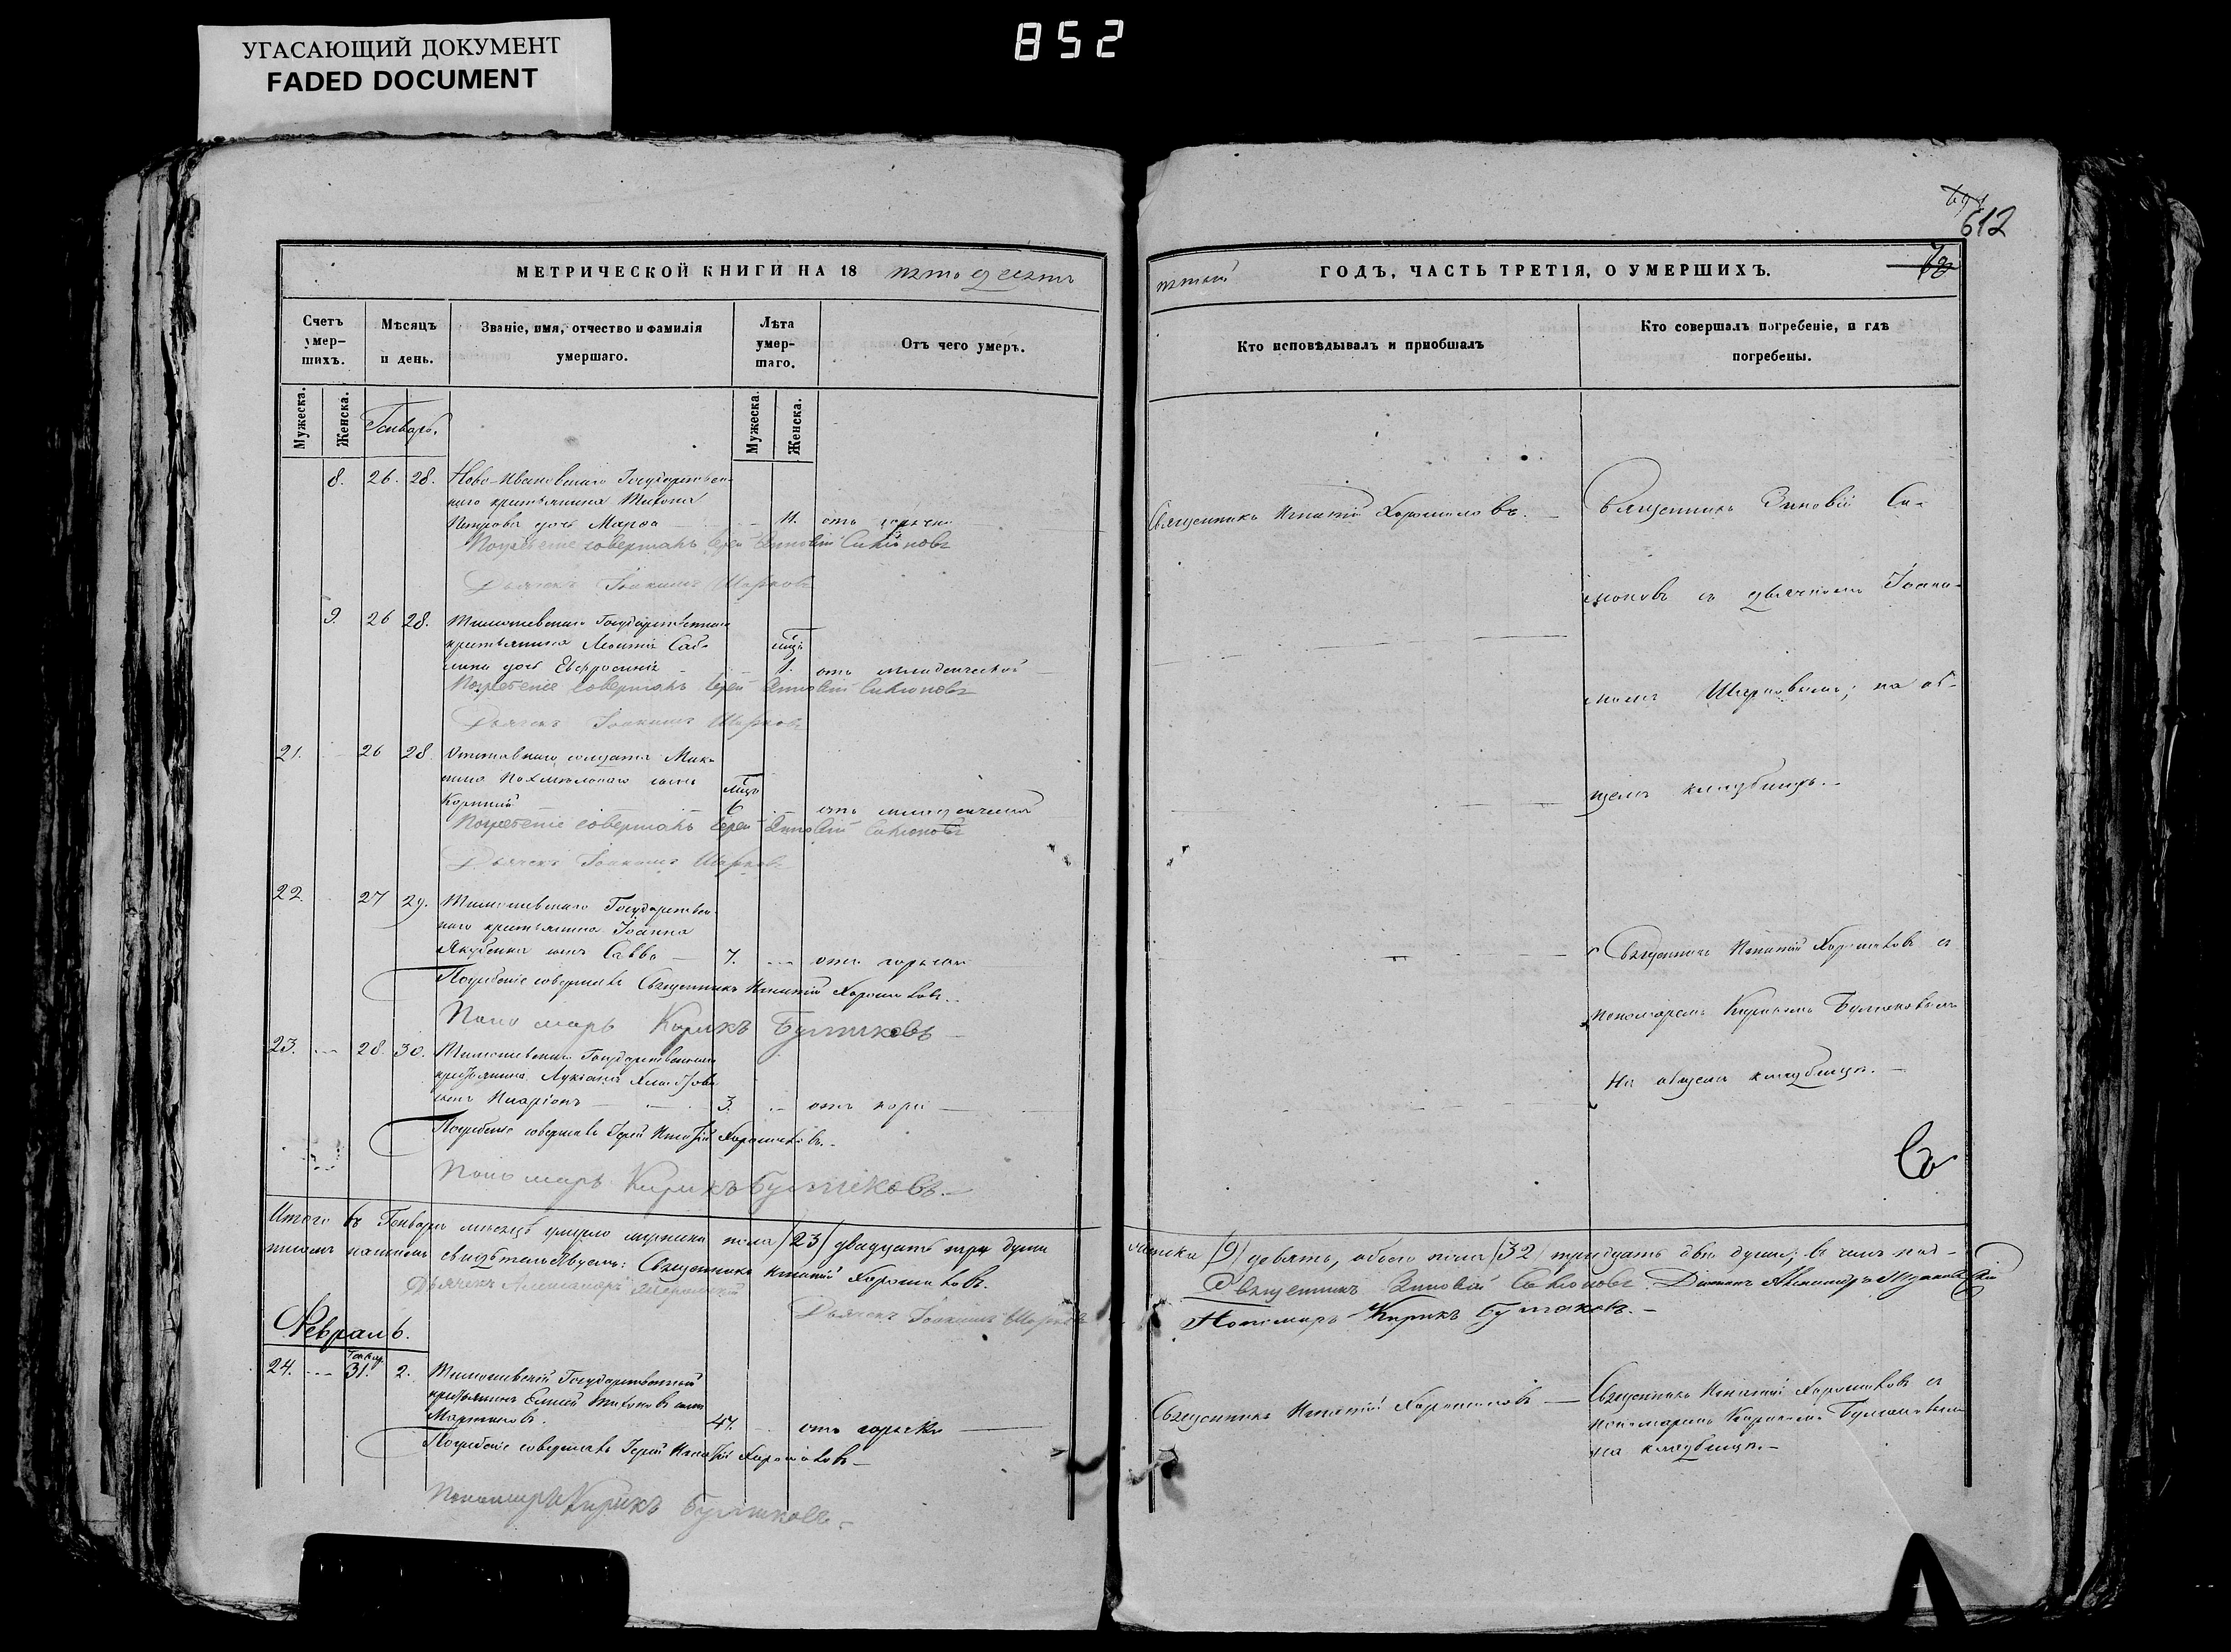 852
УГАСАЮЩИЙ ДОКУМЕНТ
FADED DOCUMENT
612
МЕТРИЧЕСКОЙ КНИГИ НА 18 пятодесятъ
пятый ГОДЪ, ЧАСТЬ ТРЕТІЯ, О УМЕРШИХЪ.
Счетъ умер-шихъ.
Мѣсяцъ и день.
Званіе, имя, отчество и фамилія умершаго.
Лѣта умер-шаго.
Отъ чего умеръ.
Кто исповѣдывалъ и пріобщалъ
Кто совершалъ погребеніе, и гдѣ погребены.
Мужеска.
Женска.
Генварь.
Мужеска.
Женска.
8. 26. 28. Ново-Ивановскаго Государствен-
наго крестьянина Тихона
Петрова дочь Марѳа 11. отъ горячки
Священникъ Игнатій Хорошиловъ.
Священникъ Зиновій Си-
Погребеніе совершалъ Іерей Зиновій
Дьячекъ Іоакимъ
9. 26 28. Тимошевскаго Государственнаго
крестьянина Леонтія
дочь Евфросинія мѣц. 1. отъ младенческой
съ дьячкомъ Іоаки-
момъ на об-
Погребеніе совершалъ Іерей Зиновій
Дьячекъ Іоакимъ
21. 26 28 Отставнаго солдата
сынъ
Корнилій мѣц. 6 отъ младенческой
щемъ кладбищѣ.
Погребеніе совершалъ Іерей Зиновій
Дьячекъ Іоакимъ
22. 27 29. Тимошевскаго Государствен-
наго крестьянина Іоанна
Якубенка сынъ Савва 7. отъ горячки
Священникъ Игнатій Хорошиловъ съ
Погребеніе совершалъ Священникъ Игнатій Хорошиловъ.
пономаремъ Кирикомъ Булгаковымъ
Пономарь Кирикъ Булгаковъ
23. 28. 30. Тимошевскаго Государственнаго
крестьянина Лукіана
сынъ Иларіонъ 3. отъ кори
На общемъ кладбищѣ.
Погребеніе совершалъ Іерей Игнатій Хорошиловъ.
Пономарь Кирикъ Булгаковъ.
Итого въ Генварѣ мѣсяцѣ умерло мужеска пола /23/ двадцать три души
женска /9/ девять, обоего пола /32/ тридцать двѣ души; въ чемъ под-
писомъ нашимъ свидѣтельствуемъ: Священникъ Игнатій Хорошиловъ.
Священникъ Зиновій Діаконъ Александръ
Дьячекъ Александръ
Дьячекъ Іоакимъ
Пономарь Кирикъ Булгаковъ.
Февраль.
24. Генвар. 31. 2. Тимошевскій Государственный
крестьянинъ Елисей Тихоновъ сынъ
Мартыновъ. 47. отъ горячки
Священникъ Игнатій Хорошиловъ
Священникъ Игнатій Хорошиловъ съ
пономаремъ Кирикомъ Булгаковымъ
на кладбищѣ.
Погребеніе совершалъ Іерей Игнатій Хорошиловъ
Пономарь Кирикъ Булгаковъ.